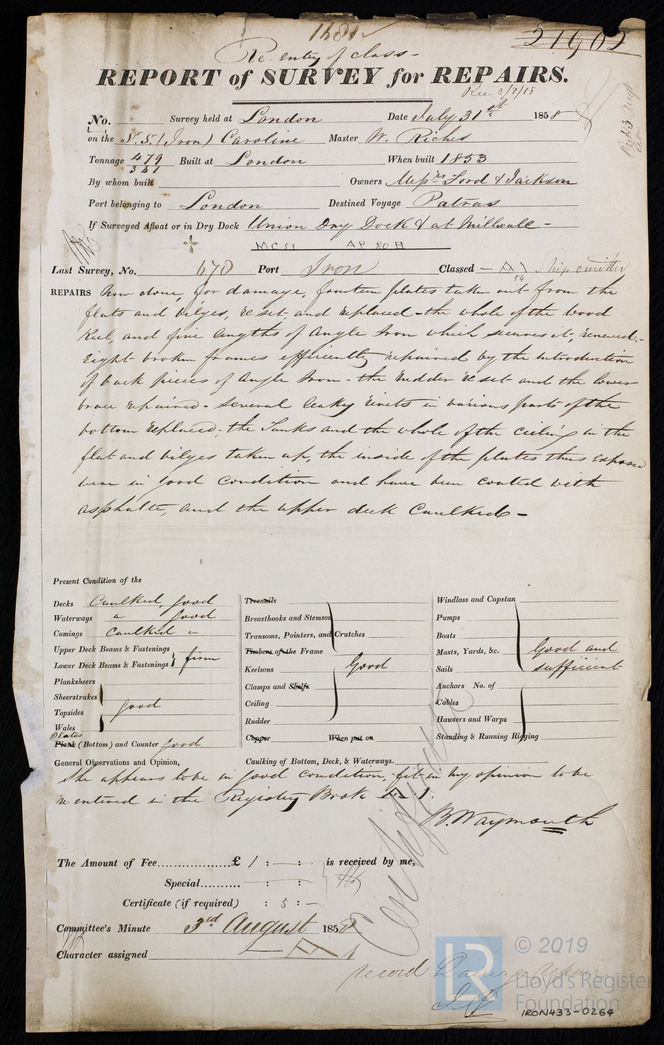 1680
21902
Re-entry of class -
REPORT of SURVEY for REPAIRS.
Rec 3/8/58
No. Survey held at London Date July 31st 1858
on the S.S. (Iron) Caroline Master W. Riches
Tonnage 479 Built at London When built 1853
341
By whom built Owners Messrs Lord & Jackson
Port belonging to London Destined Voyage Patras
If Surveyed Afloat or in Dry Dock Union Dry Dock & at Millwall -
MC 53 AP 80 A
Last Survey, No. 678 Port Iron Classed - A 1
54
REPAIRS Now done, for damage, fourteen plates taken out from the
flats and bilges, re set, and replaced - the whole of the wood
Keel, and five lengths of Angle Iron which secures it, renewed -
Eight broken frames efficiently repaired by the introduction
of back pieces of Angle Iron - the Rudder re set and the lower
brace repaired - Several leaky rivets in various parts of the
bottom replaced, the Tanks and the whole of the ceiling in the
flat and bilges taken up, the inside of the plates thus exposed
were in good condition and have been coated with
asphalte, and the upper deck Caulked -
Present Condition of the
Decks Caulked, good
Waterways " good
Comings Caulked "
Upper Deck Beams & Fastenings
Lower Deck Beams & Fastenings firm
Planksheers
Sheerstrakes
Topsides good
Wales
Plates
Plank (Bottom) and Counter good
Treenails
Breasthooks and Stemson
Transoms, Pointers, and Crutches
Timbers of the Frame
Keelsons Good
Clamps and Shelfs
Ceiling
Rudder
Copper When put on
Windlass and Capstan
Pumps
Boats
Masts, Yards, &c. Good and
Sails sufficient
Anchors No. of
Cables
Hawsers and Warps
Standing & Running Rigging
General Observations and Opinion, Caulking of Bottom, Deck, & Waterways.
She appears to be in good condition, fit in my opinion to be
re entered in the Registry Book A 1.
B. Waymouth
Certificate
The Amount of Fee £ 1 : - : - is received by me,
Special : :
Certificate (if required) : 5 : -
Committee's Minute 3rd August 1858
Character assigned - A 1
record Damage
LR
© 2019
Lloyd's Register
Foundation
IRON433-0264